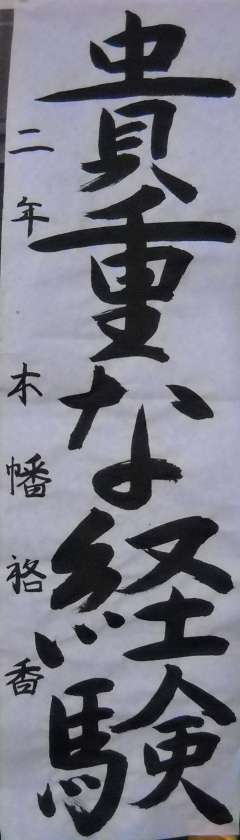 貴重な経験
二年 木幡裕香